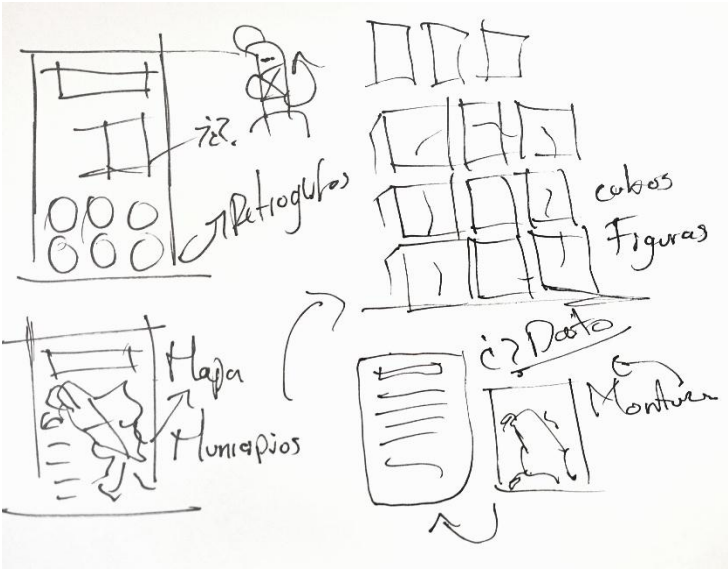 ¿?
Petroglifos
cubos
Figuras
Mapa
Municipios
¿? Dato
Montura